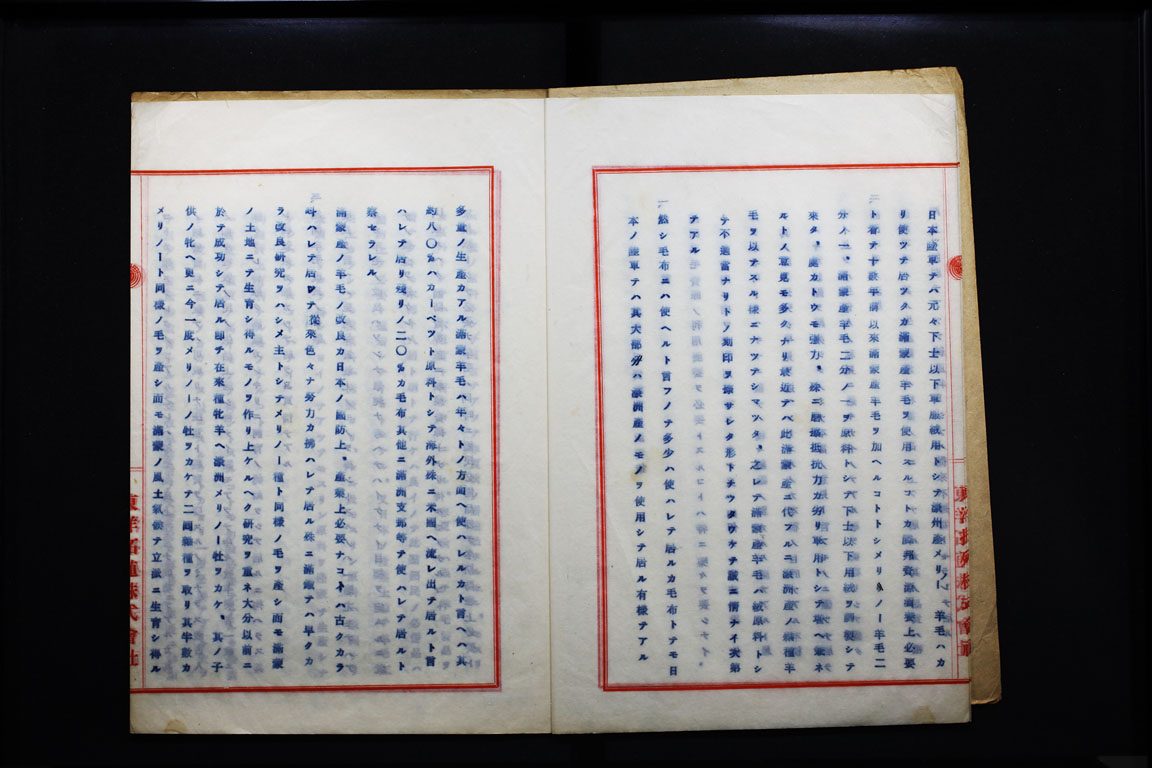 日本陸軍テハ元々下士以下軍服絨用トシテ濠州産メリノー羊毛ハカ
リ使ツテ居ツタカ滿蒙産羊毛ヲ使用スルコトカ 資源 上必要
ト看テ十數年前以來滿蒙産羊毛ヲ加ヘルコトトシメリノー羊毛二
分ノ一、滿蒙産羊毛二分ノ一ヲ原料トシテ下士以下用絨ヲ調製シテ
來タ、處カトウモ强力、殊ニ磨擦抵抗力カ劣リ軍用トシテ堪ヘ兼ネ
ルト人意見モ多クナリ最近テハ此滿蒙産ニ代フルニ濠洲産ノ雜種羊
毛ヲ以テスル樣ニナツテシマツタ、之レテ滿蒙産羊毛ハ絨原料トシ
テ不適當ナリトノ刻印ヲ捺サレタ形トナツタワケテ誠ニ情ナイ次第
テアル
一然シ毛布ニハ使ヘルト言フノテ多少ハ使ハレテ居ルカ毛布トテモ日
本ノ陸軍テハ其大部分ハ濠洲産ノモノヲ使用シテ居ル有樣テアル
多量ノ生産カアル滿蒙羊毛ハ年々トノ方面ヘ使ハレルカト言ヘハ其
約八〇%ハカーペツト原料トシテ海外殊ニ米國ヘ流レ出テ居ルト言
ハレテ居リ殘リノ二〇%カ毛布其他ニ滿洲支那等テ使ハレテ居ルト
察セラレル
滿蒙産ノ羊毛ノ改良カ日本ノ國防上、産業上必要ナコトハ古クカラ
叫ハレテ居ツテ從來色々ナ努力カ拂ハレテ居ル殊ニ滿鐵テハ早クカ
ラ改良研究ヲハシメ主トシテメリノー種ト同樣ノ毛ヲ産シ而モ滿蒙
ノ土地ニテ生育シ得ルモノヲ作リ上ケルヘク研究ヲ重ネ大分以前ニ
於テ成功シテ居ル卽チ在來種牝羊ヘ濠洲メリノー牡ヲカケ、其ノ子
供ノ牝ヘ更ニ今一度メリノーノ牡ヲカケテ二囘雜種ヲ取リ其半數カ
メリノート同樣ノ毛ヲ産シ而モ滿蒙ノ風土氣候テ立派ニ生育シ得ル
東洋拓殖株式會社
東洋拓殖株式會社